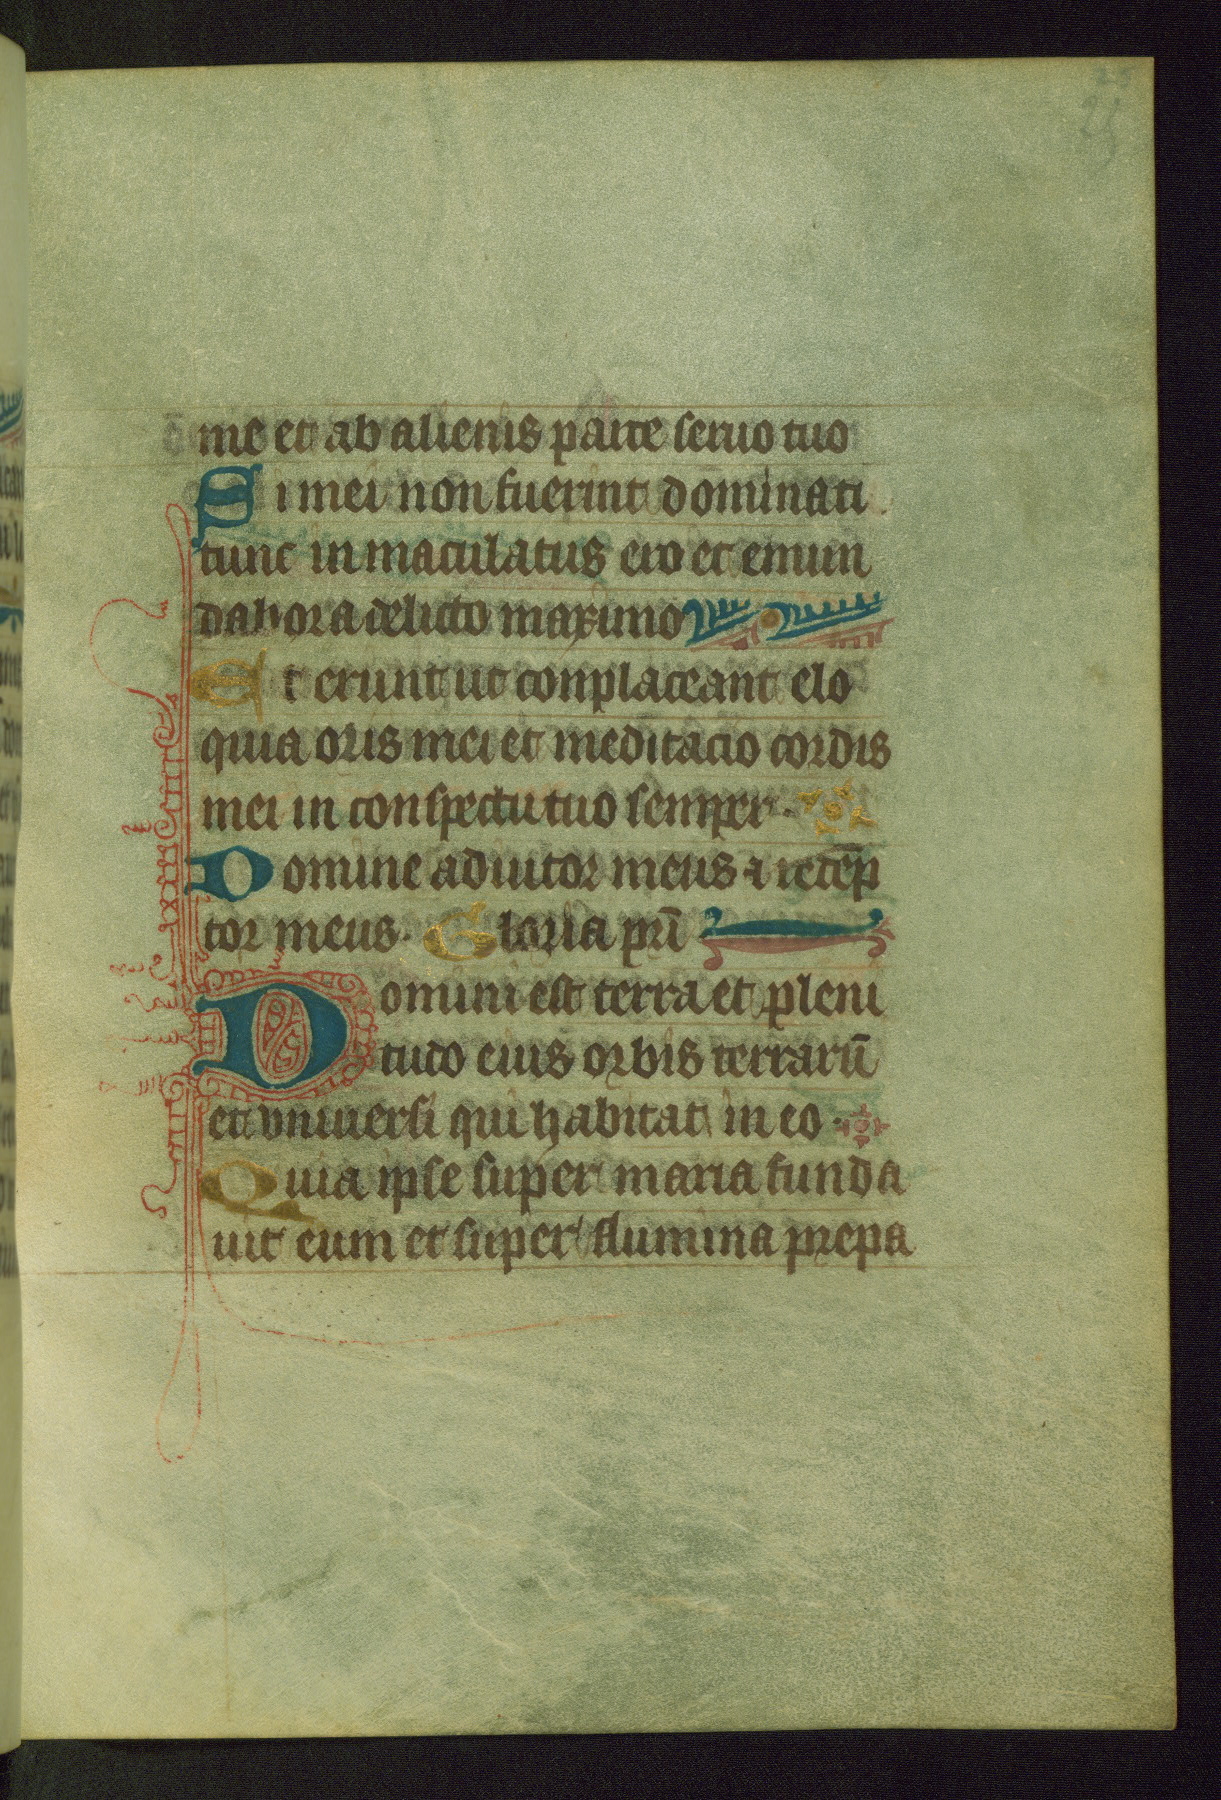 25
me et ab alienis parce seruo tuo
Si mei non fuerint dominati
tunc inmaculatus ero et emun
dabor a delicto maximo
Et erunt ut conplaceant elo
quia oris mei et meditacio cordis
mei in conspectu tuo semper.
Domine adiutor meus ⁊ recep̄
tor meus. Gloria pr̄i
Domini est terra et pleni
tudo eius orbis terrarū
et vniuersi qui habitāt in eo.
Quia ipse super maria funda
uit eum et super flumina prepa